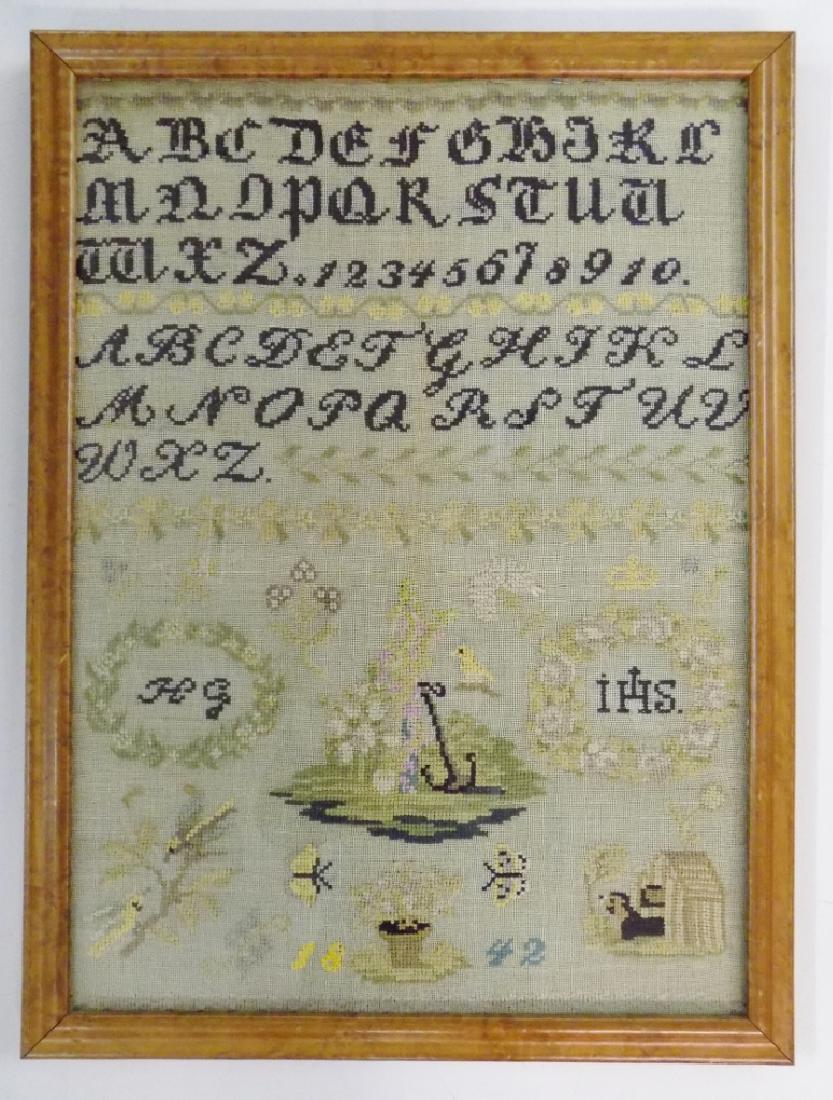 A B C D E F G H I K L
M N O P Q R S T U V
W X Z. 1 2 3 4 5 6 7 8 9 10.
A B C D E F G H I K L
M N O P Q R S T U V
W X Z.
H G
IHS.
18 42